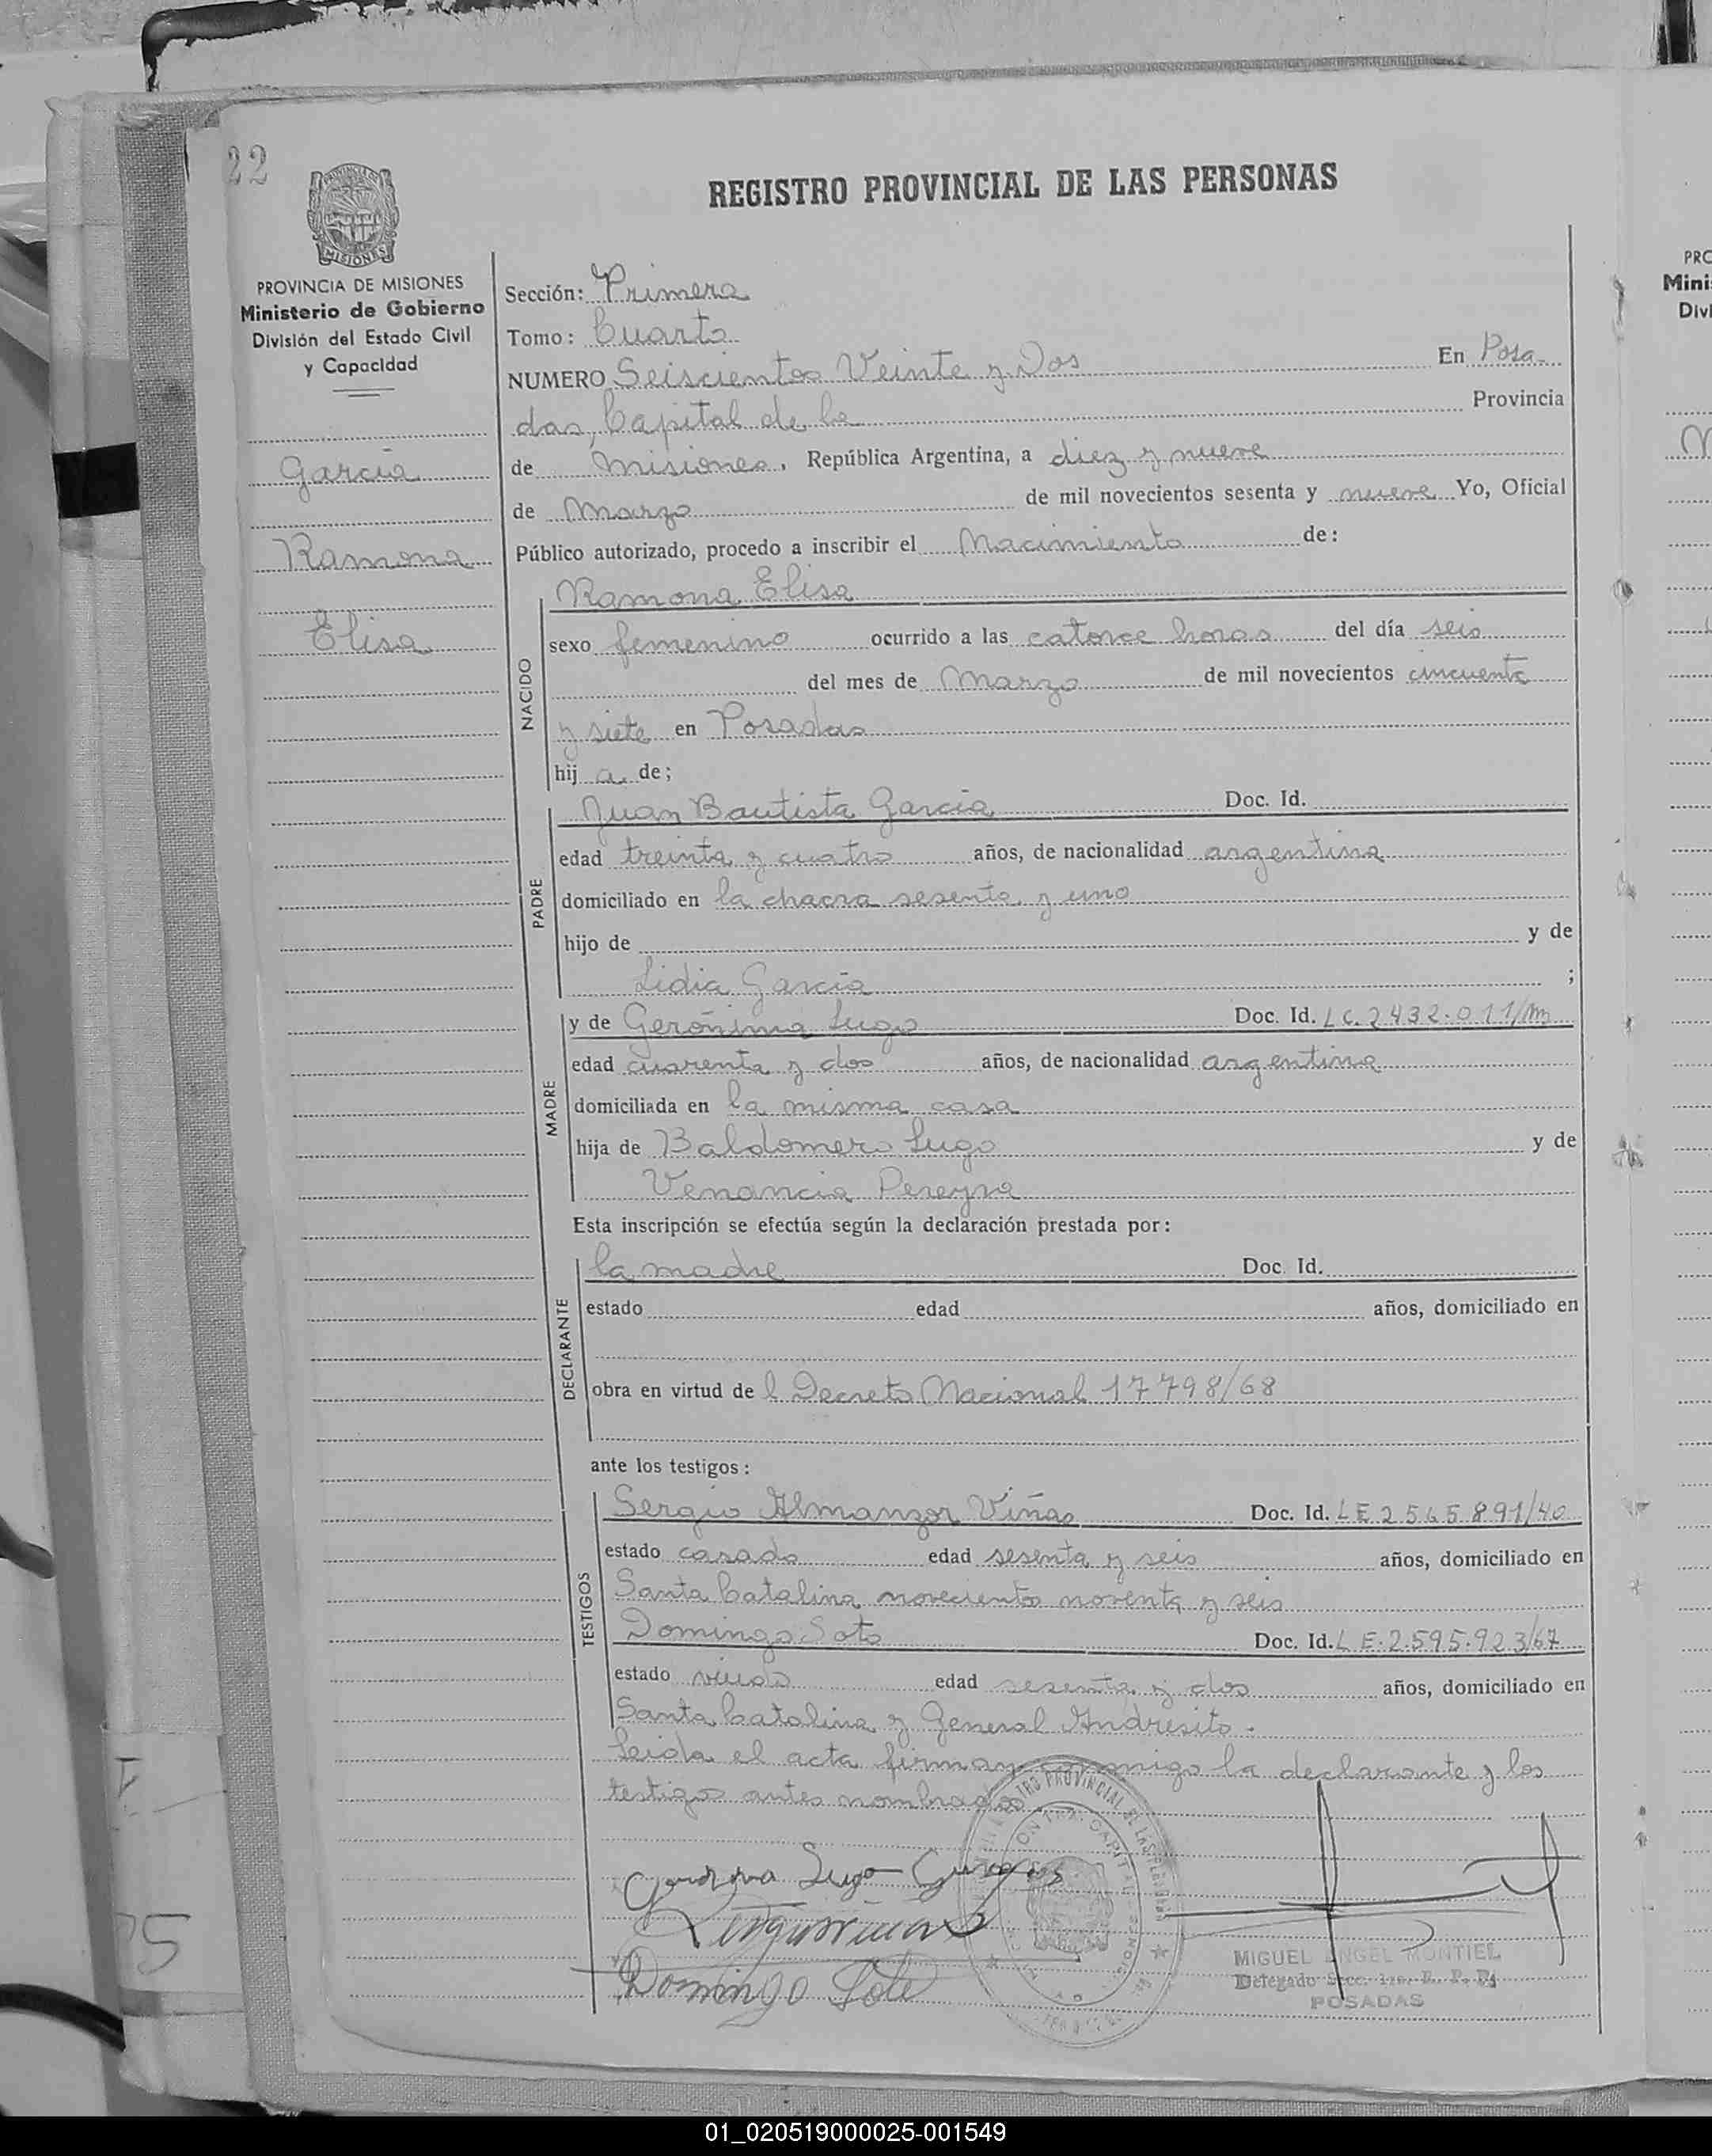 22
REGISTRO PROVINCIAL DE LAS PERSONAS
MISIONES
PROVINCIA DE MISIONES
Ministerio de Gobierno
División del Estado Civil
y Capacidad
García
Ramona
Elisa
Sección: Primera
Tomo: Cuarto
NUMERO Seiscientos Veinte y Dos En Posa-
das, Capital de la Provincia
de Misiones, República Argentina, a diez y nueve
de Marzo de mil novecientos sesenta y nueve Yo, Oficial
Público autorizado, procedo a inscribir el Nacimiento de:
NACIDO
Ramona Elisa
sexo femenino ocurrido a las catorce horas del día seis
del mes de Marzo de mil novecientos cincuenta
y siete en Posadas
hij a de;
PADRE
Juan Bautista García Doc. Id.
edad treinta y cuatro años, de nacionalidad argentina
domiciliado en la chacra sesenta y uno
hijo de y de
Lidia García ;
MADRE
y de Gerónima Lugo Doc. Id. LC. 2432.011/M
edad cuarenta y dos años, de nacionalidad argentina
domiciliada en la misma casa
hija de Baldomero Lugo y de
Venancia Pereyra
Esta inscripción se efectúa según la declaración prestada por:
DECLARANTE
la madre Doc. Id.
estado edad años, domiciliado en
obra en virtud de l Decreto Nacional 17798/68
ante los testigos:
TESTIGOS
Sergio Almanzor Viñas Doc. Id. LE 2565891/40
estado casado edad sesenta y seis años, domiciliado en
Santa Catalina novecientos noventa y seis
Domingo Soto Doc. Id. L E. 2.595.923/67
estado viudo edad sesenta y dos años, domiciliado en
Santa Catalina y General Andresito.
Leida el acta firman conmigo la declarante y los
testigos antes nombrados
Domingo Soto
MIGUEL ANGEL MONTIEL
Delegado Secc. 1ra. R. P. P.
POSADAS
PRO
Mini
Divi
01_020519000025-001549